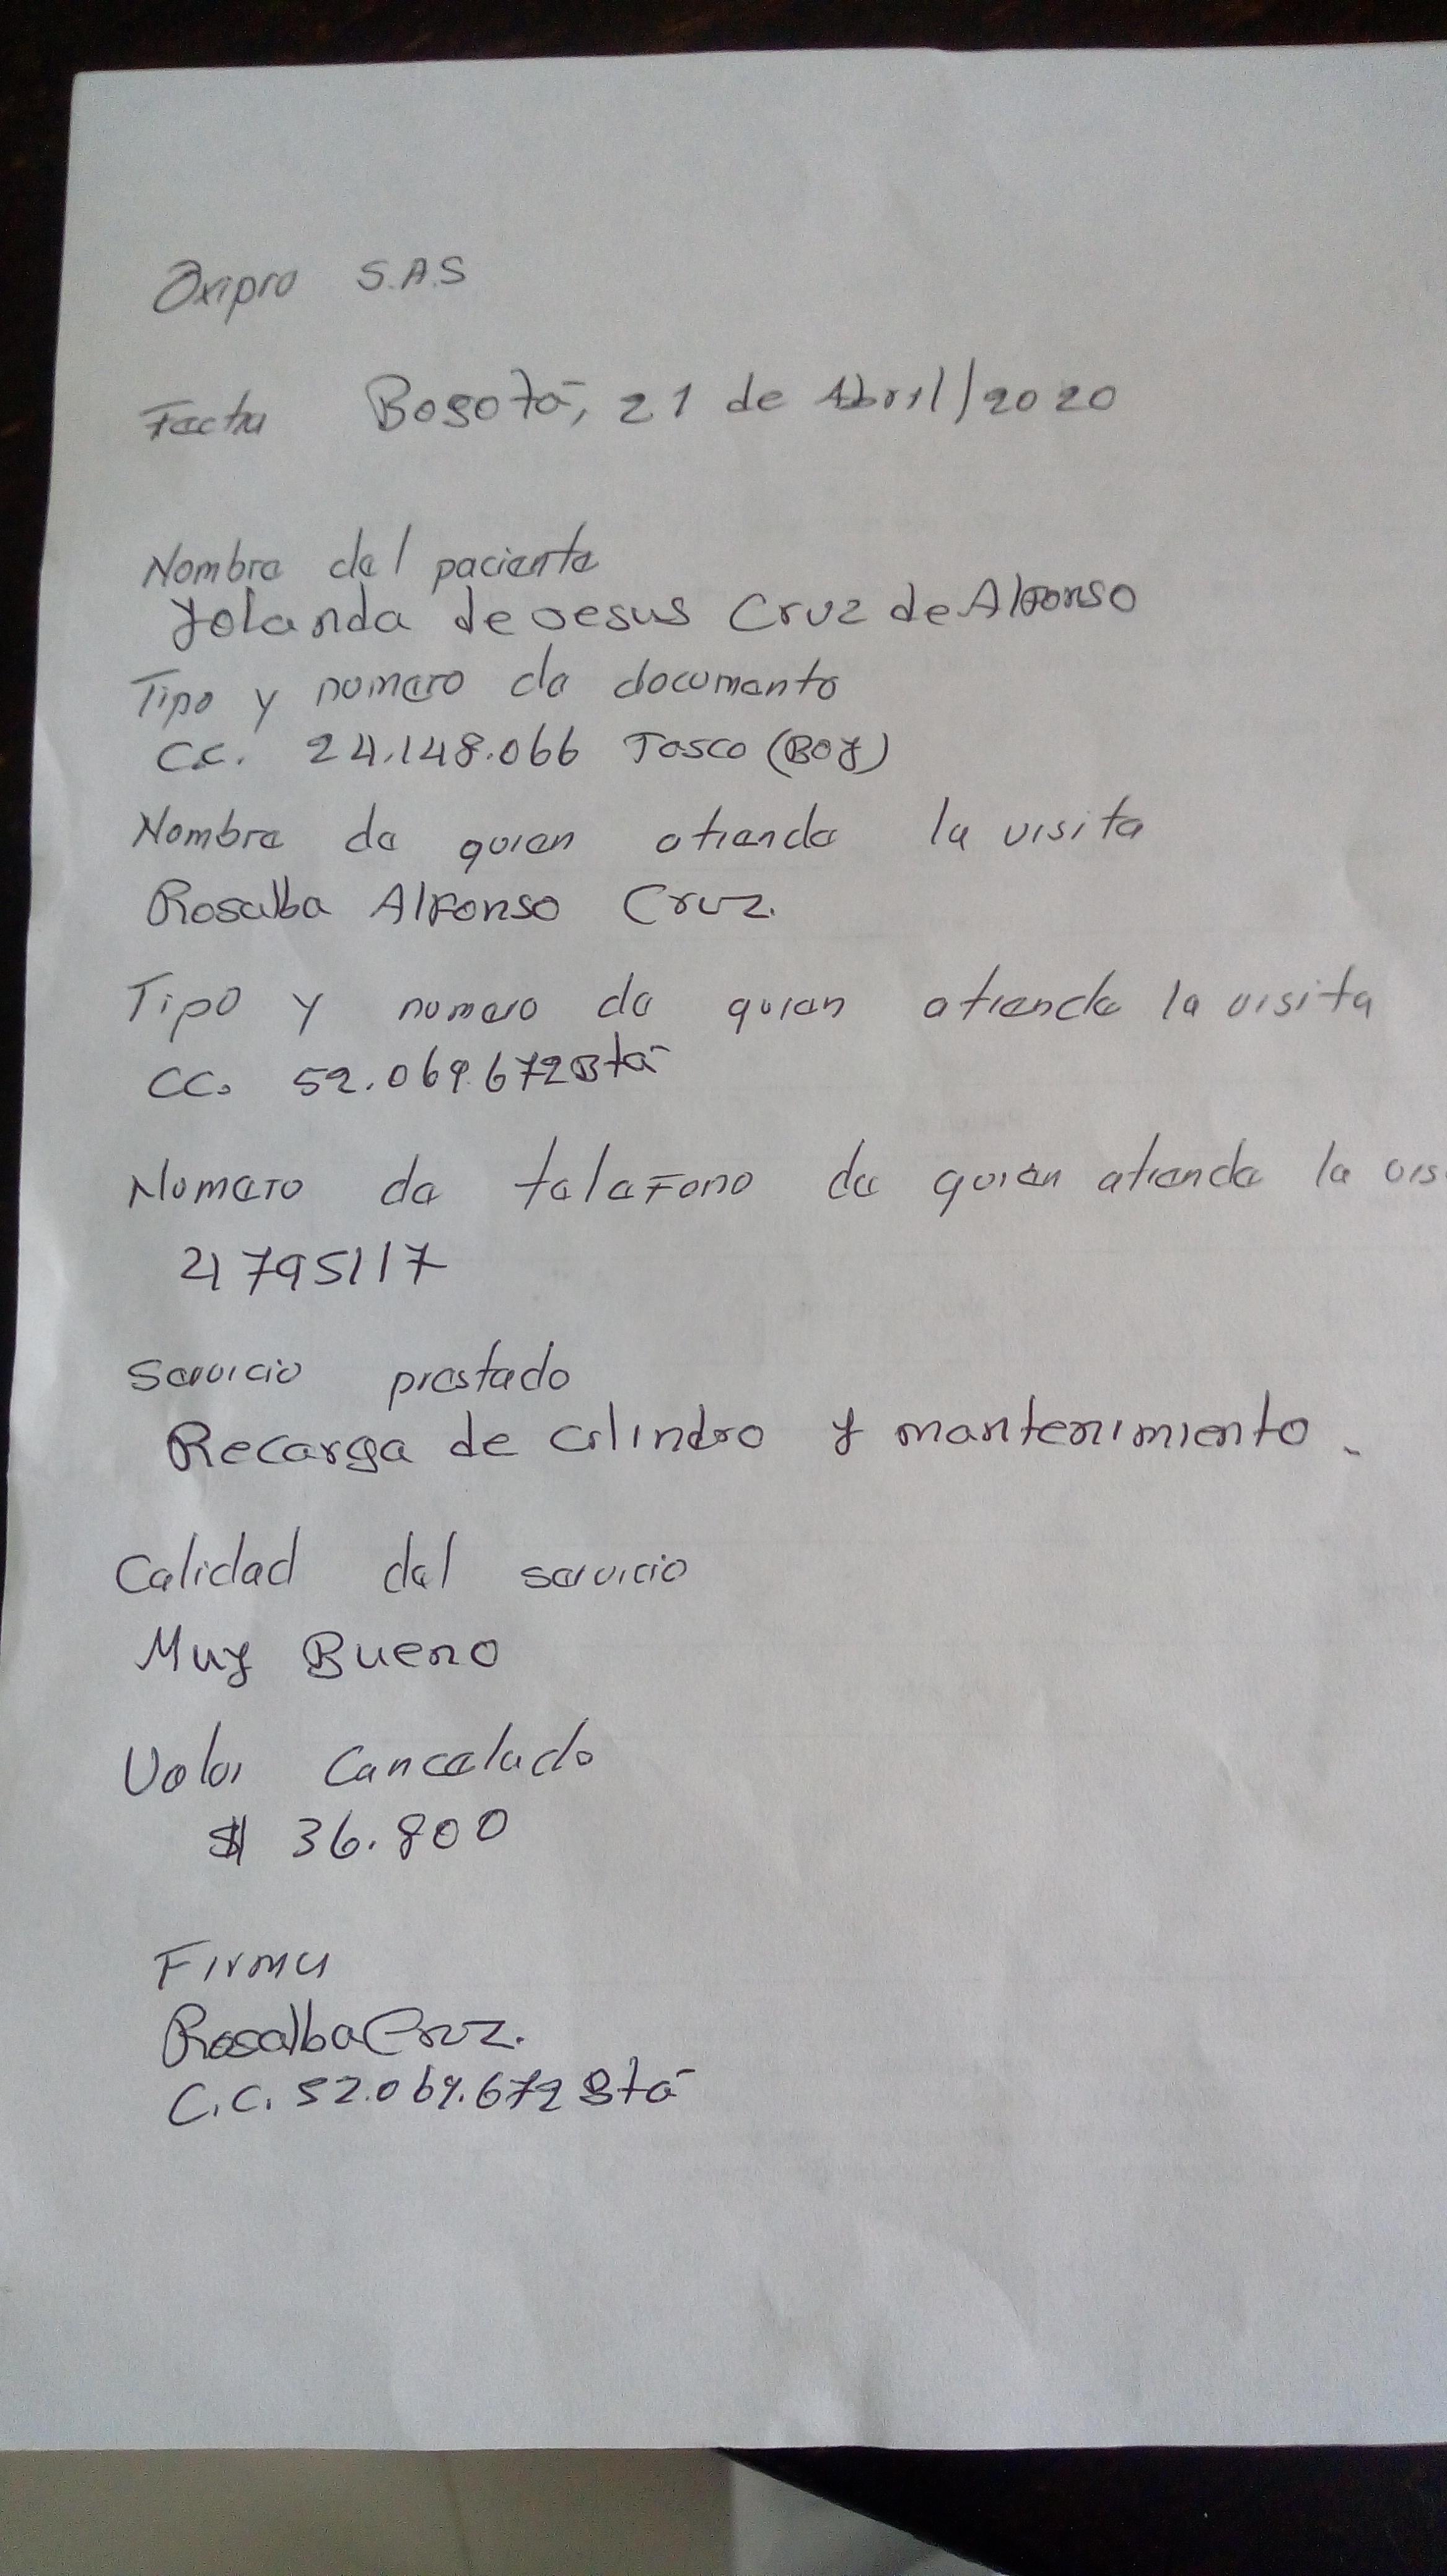 Oxipro S.A.S
Fecha Bogotá, 21 de Abril/2020
Nombre del paciente
Yolanda de Jesus Cruz de Alfonso
Tipo y numero de documento
CC. 24.148.066 Tasco (Boy)
Nombre de quien atiende la visita
Rosalba Alfonso Cruz.
Tipo y numero de quien atiende la visita
CC. 52.069.672 Btá
Numero de telefono de quien atiende la vis
4795117
Servicio prestado
Recarga de cilindro y mantenimiento.
Calidad del servicio
Muy Bueno
Valor Cancelado
$ 36.800
Firma
Rosalba Cruz.
C.C. 52.069.672 Btá